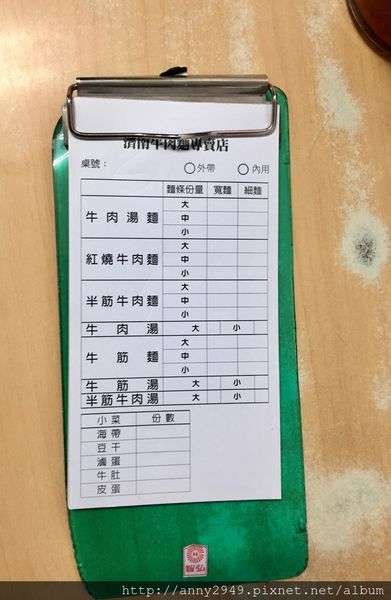 濟南牛肉麵專賣店
桌號： ○外帶 ○內用
麵條份量 寬麵 細麵
牛肉湯麵 大
中
小
紅燒牛肉麵 大
中
小
半筋牛肉麵 大
中
小
牛肉湯 大 小
牛筋麵 大
中
小
牛筋湯 大 小
半筋牛肉湯 大 小
小菜 份數
海帶
豆干
滷蛋
牛肚
皮蛋
http://anny2949.pixnet.net/album